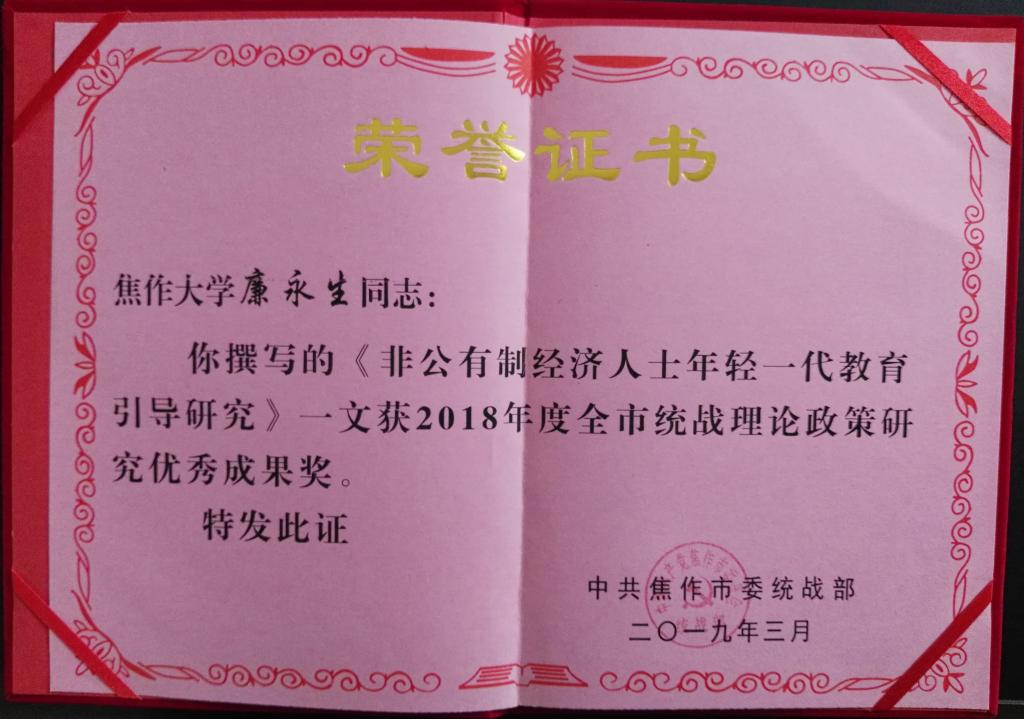 荣誉证书
焦作大学廉永生同志：
你撰写的《非公有制经济人士年轻一代教育
引导研究》一文获2018年度全市统战理论政策研
究优秀成果奖。
特发此证
中共焦作市委统战部
二〇一九年三月
统战部